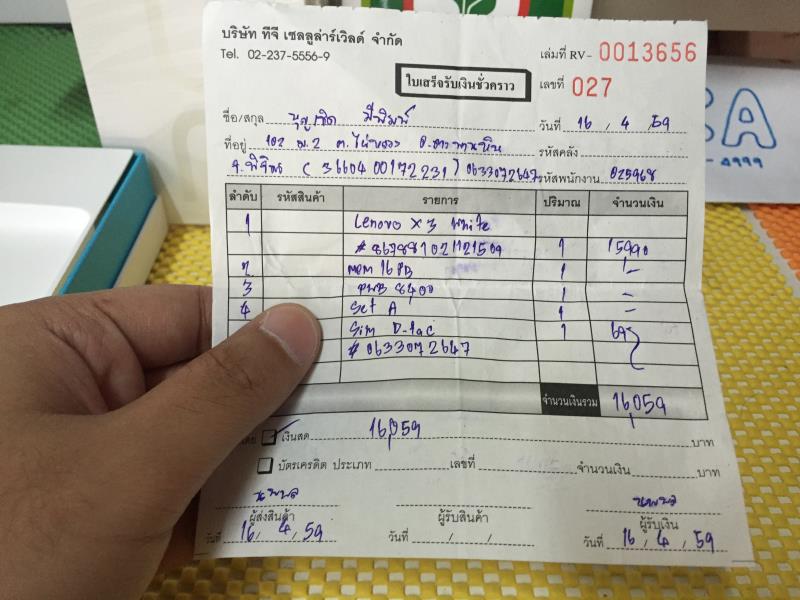 บริษัท ทีจี เซลลูล่าร์เวิลด์ จำกัด
Tel. 02-237-5556-9
เล่มที่ RV- 0013656
ใบเสร็จรับเงินชั่วคราว
เลขที่ 027
ชื่อ/สกุล มีพิมพ์ วันที่ 16 / 4 / 59
ที่อยู่ 102 ม.2 ต.ไผ่หลวง อ.ตะพานหิน รหัสคลัง
จ.พิจิตร (3660400172231) 0633072647 รหัสพนักงาน 025968
ลำดับ รหัสสินค้า รายการ ปริมาณ จำนวนเงิน
1 Lenovo X3 White
# 867881021121509 1 15990
2 mem 16 GB 1 -
3 8400 1 -
4 Set A 1 -
Sim D-tac 1 69
# 0633072647
จำนวนเงินรวม 16,059
เงินสด 16,059 บาท
บัตรเครดิต ประเภท เลขที่ จำนวนเงิน บาท
ผู้ส่งสินค้า ผู้รับสินค้า ผู้รับเงิน
วันที่ 16 / 4 / 59 วันที่ / / วันที่ 16 / 4 / 59